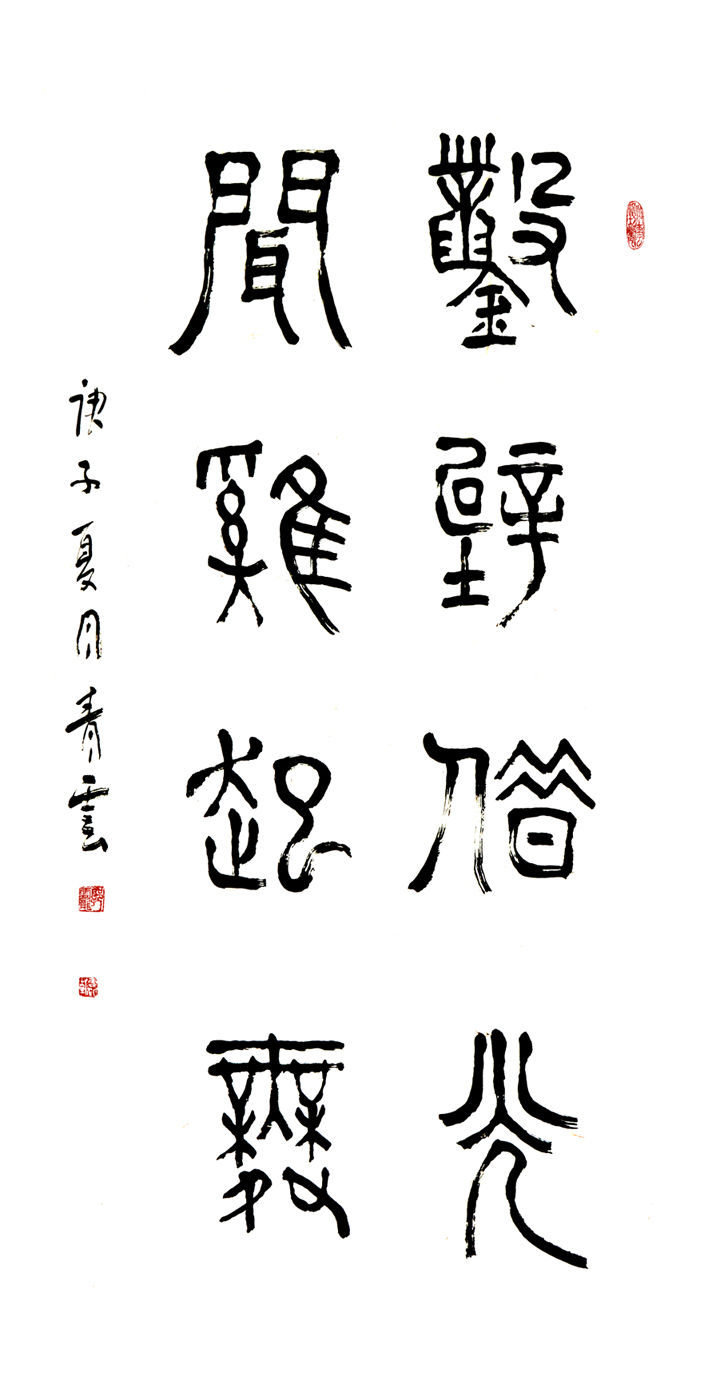 鑿壁借光
聞雞起舞
庚子夏月青雲